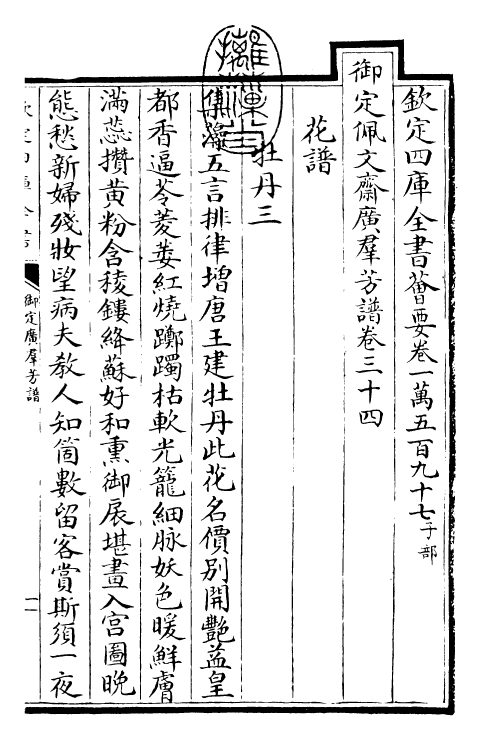 欽定四庫全書薈要卷一萬五百九十七子部
御定佩文齋廣羣芳譜卷三十四
花譜
牡丹三
集藻五言排律增唐王建牡丹此花名價別開艷益皇
都香逼苓菱萎紅燒躑躅枯軟光籠細脉妖色暖鮮膚
滿蕊攢黄粉含稜鏤絳蘇好和熏御扆堪畫入宫圖晚
態愁新婦殘妝望病夫教人知箇數留客賞斯須一夜
御定廣羣芳譜
一